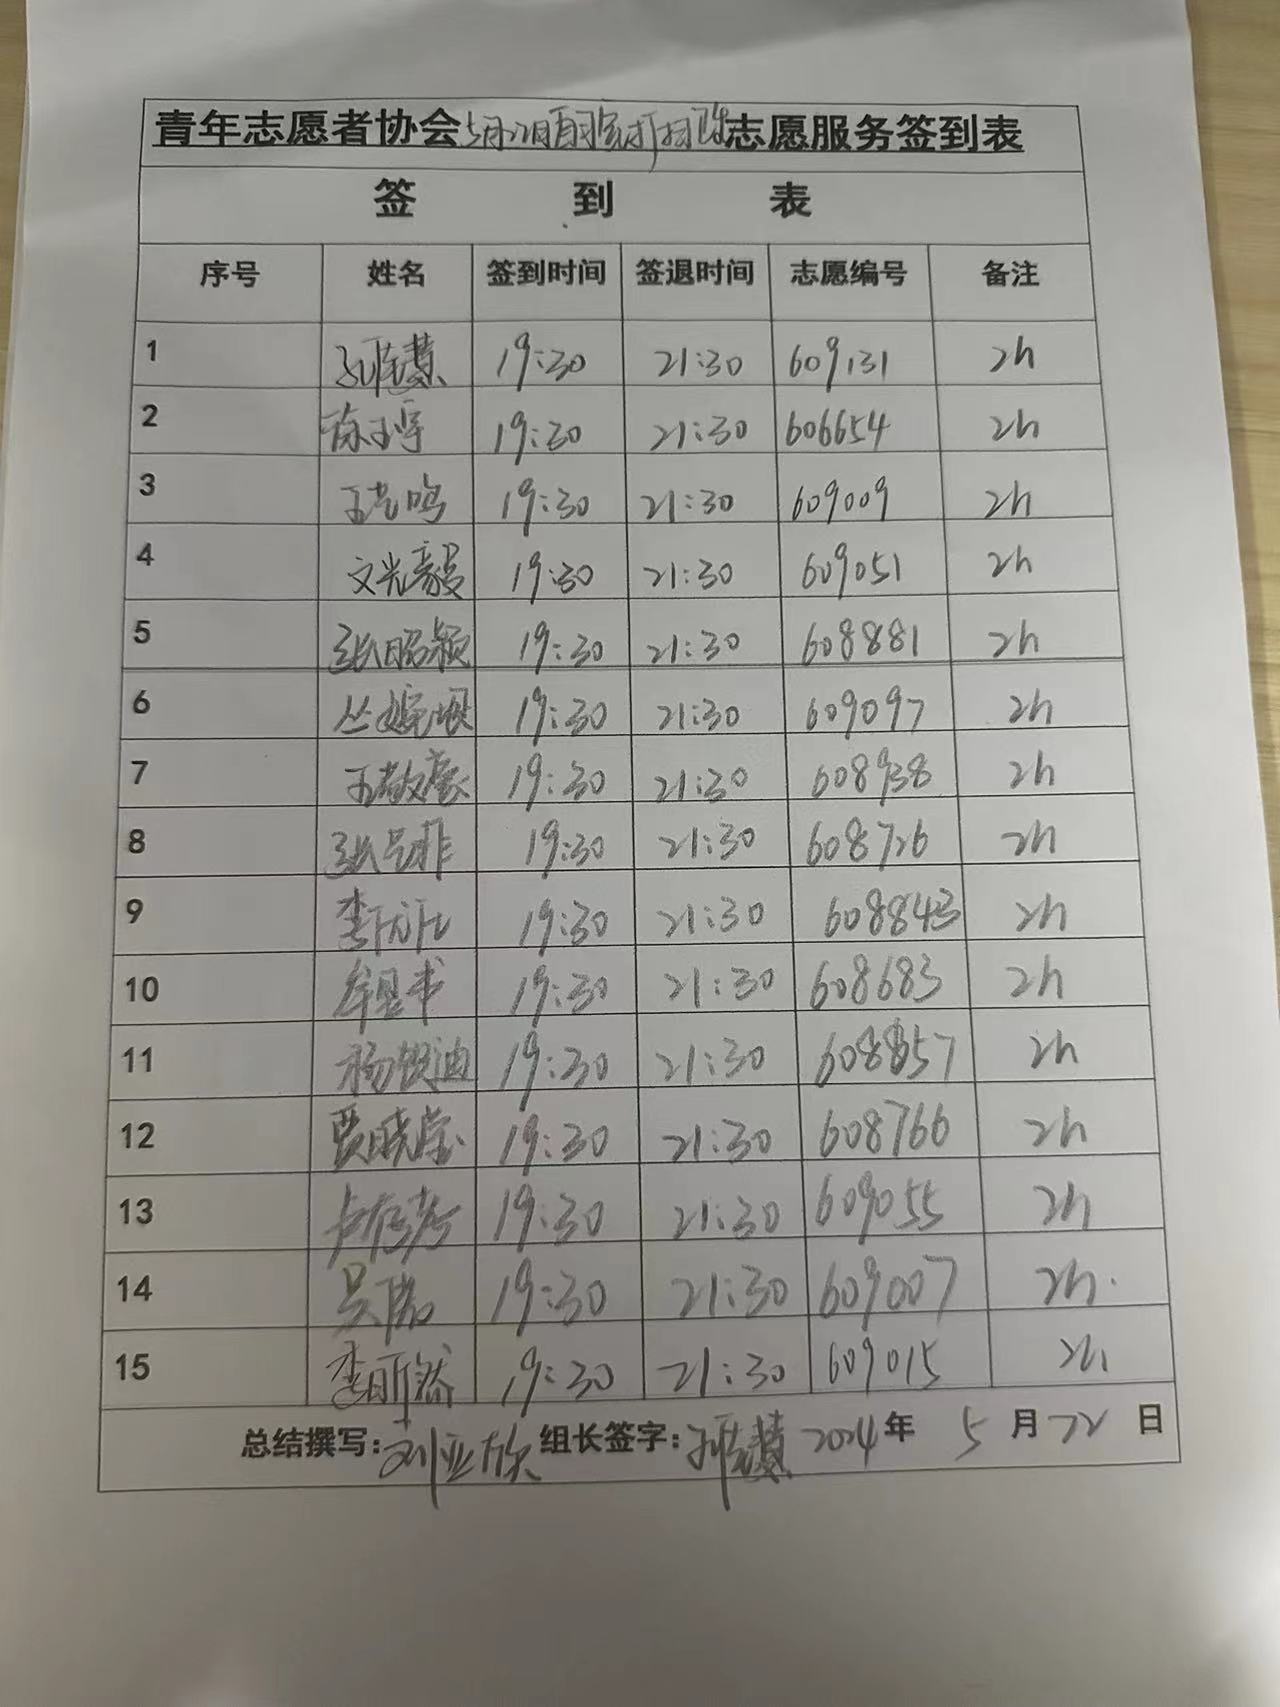 青年志愿者协会5月22日 打扫 志愿服务签到表
签 到 表
序号 姓名 签到时间 签退时间 志愿编号 备注
1 19:30 21:30 609131 2h
2 19:30 21:30 606654 2h
3 19:30 21:30 609009 2h
4 文光毅 19:30 21:30 609051 2h
5 张昭颖 19:30 21:30 608881 2h
6 19:30 21:30 609097 2h
7 王敬 19:30 21:30 608938 2h
8 19:30 21:30 608726 2h
9 李 19:30 21:30 608843 2h
10 牟昱书 19:30 21:30 608683 2h
11 杨 迪 19:30 21:30 608857 2h
12 贾晓莹 19:30 21:30 608766 2h
13 19:30 21:30 609055 2h
14 吴 19:30 21:30 609007 2h.
15 李昕 19:30 21:30 609015 2h
总结撰写: 刘亚欣 组长签字: 慧 2024年 5 月 22 日